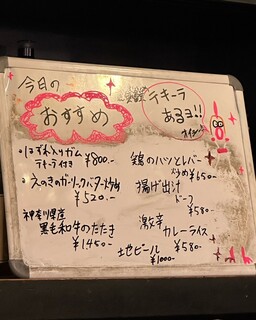 今日の
おすすめ
テキーラ
あるヨ!!
・はずれ入りガム
テキーラ付き ¥800.-
えのきのガーリックバター炒め
¥520.-
神奈川県産
黒毛和牛のたたき
¥1450.-
鶏のハツとレバー
炒め ¥650.-
揚げ出汁
ドーフ
¥580.-
激辛
カレーライス
¥580.-
地ビール
¥1000.-